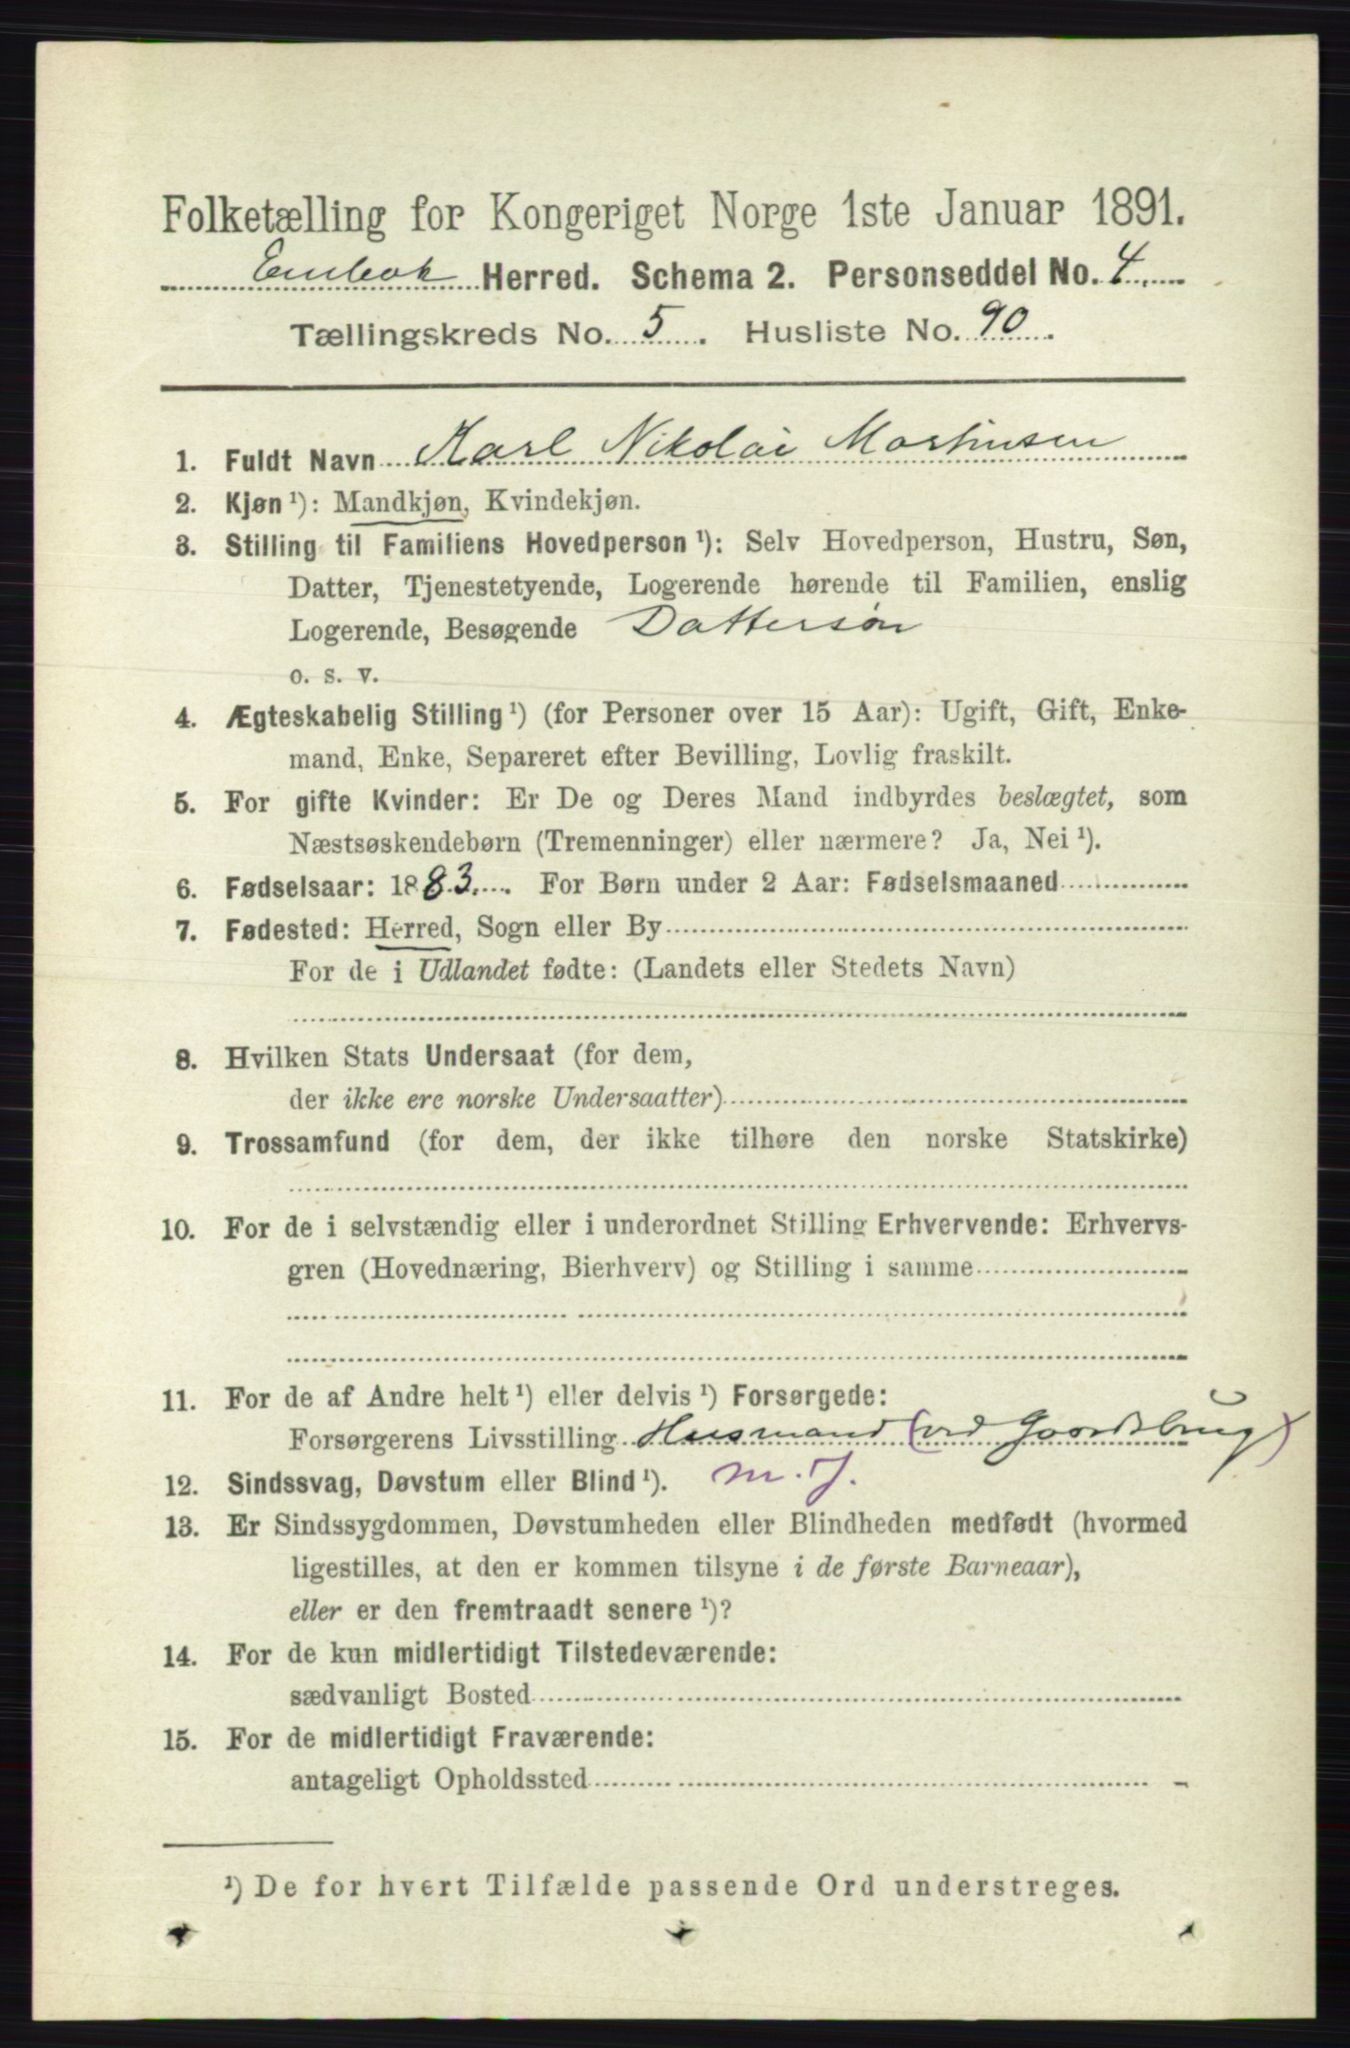 Folketælling for Kongeriget Norge 1ste Januar 1891.
Enebak Herred. Schema 2. Personseddel No. 4
Tællingskreds No. 5. Husliste No. 90.
1. Fuldt Navn Karl Nikolai Martinsen
2. Kjøn ¹): Mandkjøn, Kvindekjøn.
3. Stilling til Familiens Hovedperson ¹): Selv Hovedperson, Hustru, Søn,
Datter, Tjenestetyende, Logerende hørende til Familien, enslig
Logerende, Besøgende Dattersøn
o. s. v.
4. Ægteskabelig Stilling ¹) (for Personer over 15 Aar): Ugift, Gift, Enke-
mand, Enke, Separeret efter Bevilling, Lovlig fraskilt.
5. For gifte Kvinder: Er De og Deres Mand indbyrdes beslægtet, som
Næstsøskendebørn (Tremenninger) eller nærmere? Ja, Nei ¹).
6. Fødselsaar: 1883. For Børn under 2 Aar: Fødselsmaaned
7. Fødested: Herred, Sogn eller By
For de i Udlandet fødte: (Landets eller Stedets Navn)
8. Hvilken Stats Undersaat (for dem,
der ikke ere norske Undersaatter)
9. Trossamfund (for dem, der ikke tilhøre den norske Statskirke)
10. For de i selvstændig eller i underordnet Stilling Erhvervende: Erhvervs-
gren (Hovednæring, Bierhverv) og Stilling i samme
11. For de af Andre helt ¹) eller delvis ¹) Forsørgede:
Forsørgerens Livsstilling Husmand (ved Gaardsbrug)
12. Sindssvag, Døvstum eller Blind ¹). m. J.
13. Er Sindssygdommen, Døvstumheden eller Blindheden medfødt (hvormed
ligestilles, at den er kommen tilsyne i de første Barneaar),
eller er den fremtraadt senere ¹)?
14. For de kun midlertidigt Tilstedeværende:
sædvanligt Bosted
15. For de midlertidigt Fraværende:
antageligt Opholdssted
¹) De for hvert Tilfælde passende Ord understreges.